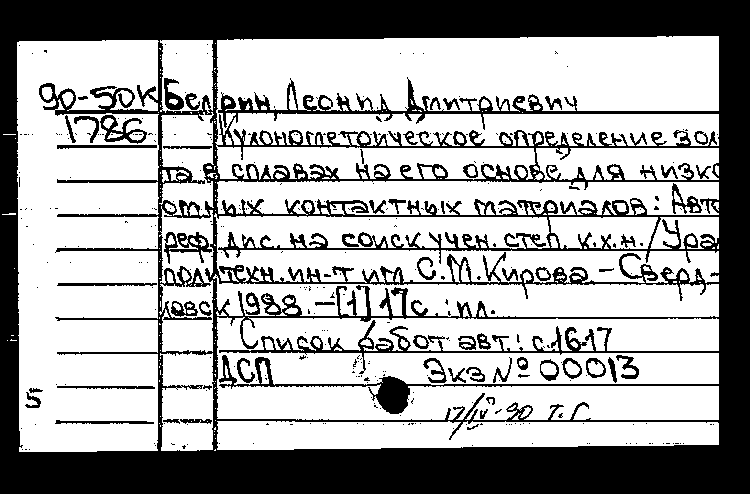 90-50К Белрин, Леонид Дмитриевич
1786 Кулонометрическое определение золо
та в сплавах на его основе для низко
омных контактных материалов: Авто
реф. дис. на соиск. учен. степ. к.х.н. / Урал
политехн. ин-т им. С.М. Кирова. - Сверд-
ловск, 1988. - [1] 17 с. : ил.
Список работ авт.: с. 16-17
ДСП Экз № 00013
5
17/IV-90 Т. Г